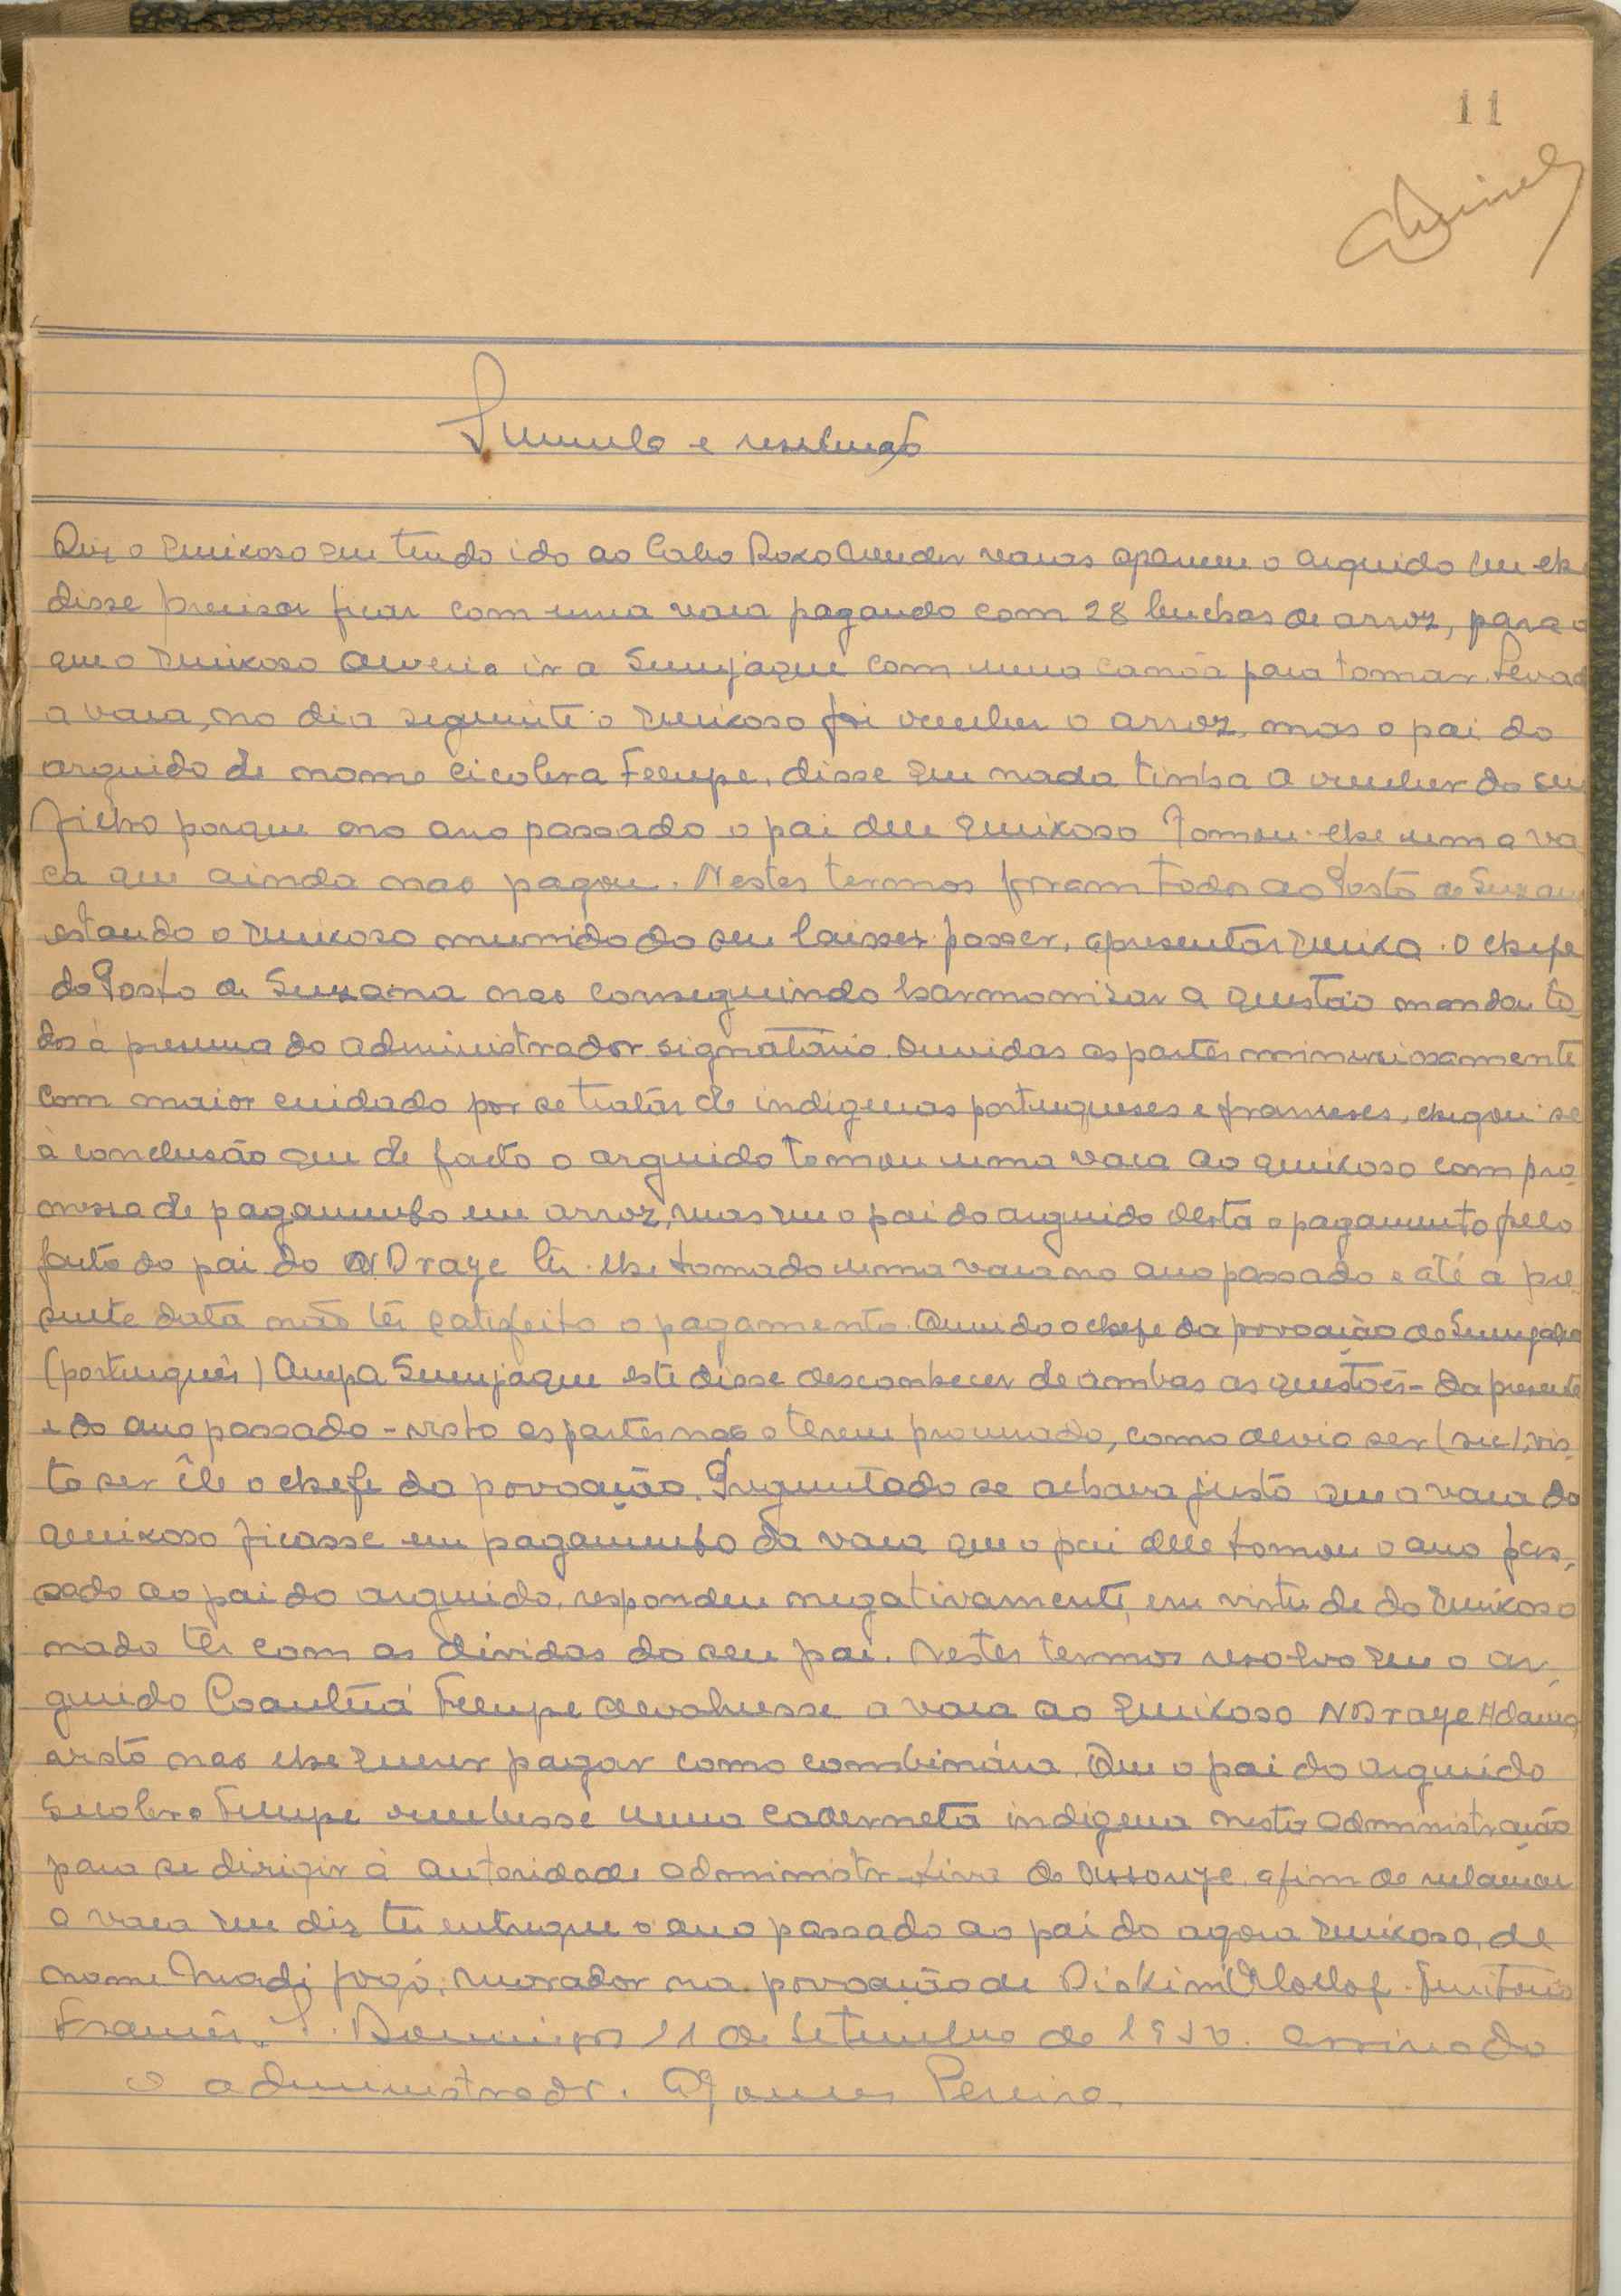 11
Sumula e resolução
Diz o queixoso que tendo ido ao Cabo Roxo vender vacas apareceu o arguido que lhe
disse precisar ficar com uma vaca pagando com 28 bushas de arroz, para o
que o queixoso deveria ir a Sumjaque com uma canôa para tomar. Levada
a vaca, no dia seguinte o queixoso foi receber o arroz, mas o pai do
arguido de nome Cicolera Feupe, disse que nada tinha a receber do seu
filho porque no ano passado o pai dele queixoso tomou-lhe uma va-
ca que ainda não pagou. Nestes termos foram todos ao Posto de Suzana
estando o queixoso munido do seu laisser passer, apresentar queixa. O chefe
do Posto de Suzana não conseguindo harmonizar a questão mandou to-
dos à presença do administrador signatário. Ouvidas as partes minuciosamente
com maior cuidado por se tratar de indigenas portugueses e franceses, chegou-se
à conclusão que de facto o arguido tomou uma vaca ao queixoso com pro-
messa de pagamento em arroz, mas que o pai do arguido obsta o pagamento pelo
facto do pai do NDraye têr-lhe tomado uma vaca no ano passado e até a pre-
sente data não têr satisfeito o pagamento. Ouvido o chefe da povoação de Sumjaque
(português) Ampa Sumjaque este disse desconhecer de ambas as questões - da presente
e do ano passado - visto as partes não o terem procurado, como devia ser (sic), vis-
to ser êle o chefe da povoação. Preguntado se achava justo que a vaca do
queixoso ficasse em pagamento da vaca que o pai dele tomou o ano pas-
sado ao pai do arguido, respondeu negativamente, em virtude do queixoso
nada têr com as dividas do seu pai. Nestes termos resolvo que o ar-
guido Feupe devolvesse a vaca ao queixoso NDraye
visto não lhe querer pagar como combinára. Que o pai do arguido
Feupe recebesse uma caderneta indigena nesta administração
para se dirigir à autoridade administrativa de Ussouye afim de reclamar
a vaca que diz têr entregue o ano passado ao pai do agora queixoso, de
nome morador na povoação de Território
Francês. S. Domingos 11 de Setembro de 1950. Assinado
O administrador. Gomes Pereira